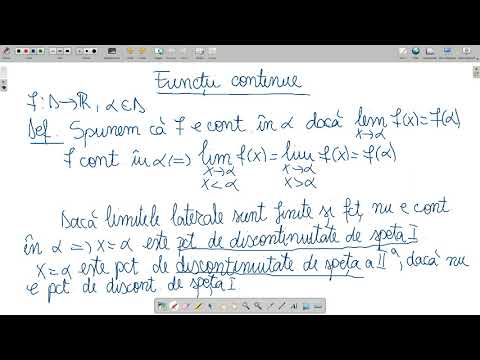 Funcții continue
f: D→ℝ, α∈D
Def. Spunem că f e cont. în α dacă lim x→α f(x)=f(α)
f cont în α (=) lim x→α x<α f(x)= lim x→α x>α f(x)=f(α)
Dacă limitele laterale sunt finite și fct, nu e cont
în α => x=α este pct de discontinuitate de speța I
x=α este pct de discontinuitate de speța a II a, dacă nu
e pct de discont de speța I